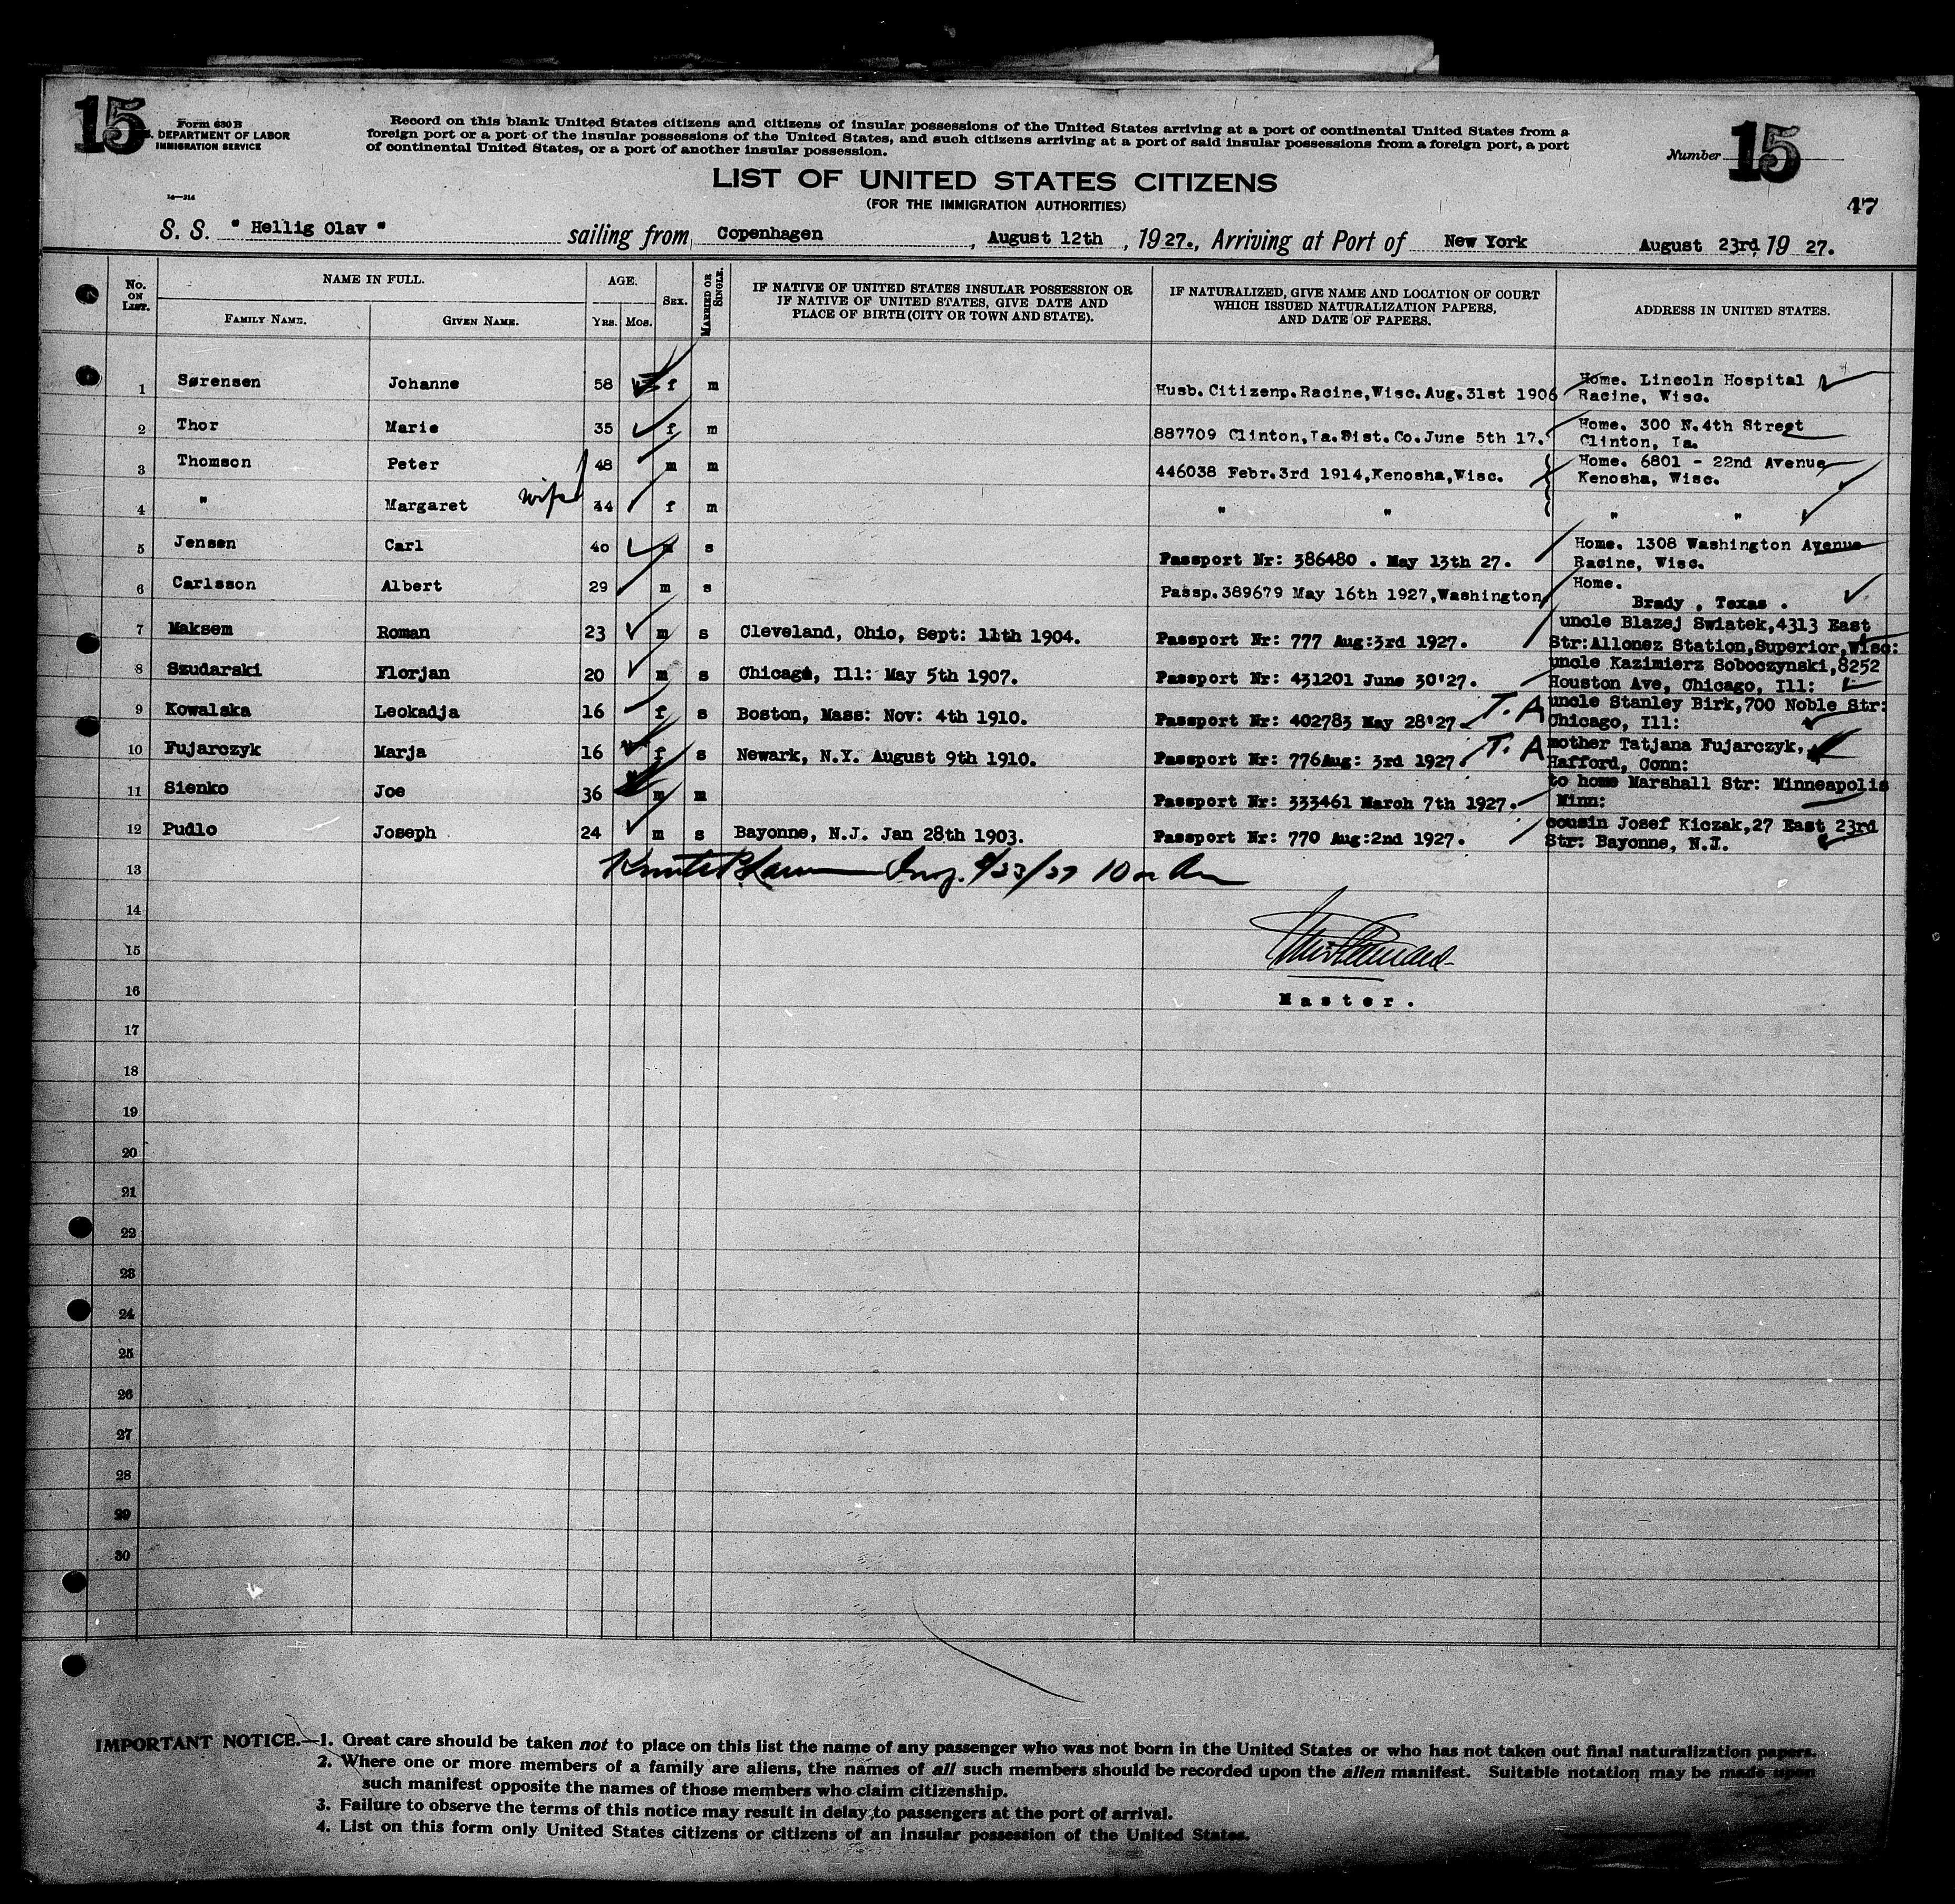 15
Form 630 B
S. DEPARTMENT OF LABOR
IMMIGRATION SERVICE
14—214
Record on this blank United States citizens and citizens of insular possessions of the United States arriving at a port of continental United States from a
foreign port or a port of the insular possessions of the United States, and such citizens arriving at a port of said insular possessions from a foreign port, a port
of continental United States, or a port of another insular possession.
Number 15
LIST OF UNITED STATES CITIZENS
(FOR THE IMMIGRATION AUTHORITIES)
47
S. S. " Hellig Olav " sailing from Copenhagen, August 12th, 1927., Arriving at Port of New York August 23rd, 19 27.
No. ON LIST. NAME IN FULL. FAMILY NAME. GIVEN NAME. AGE. YRS. MOS. SEX. MARRIED OR SINGLE. IF NATIVE OF UNITED STATES INSULAR POSSESSION OR IF NATIVE OF UNITED STATES, GIVE DATE AND PLACE OF BIRTH (CITY OR TOWN AND STATE). IF NATURALIZED, GIVE NAME AND LOCATION OF COURT WHICH ISSUED NATURALIZATION PAPERS, AND DATE OF PAPERS. ADDRESS IN UNITED STATES.
1 Sørensen Johanne 58 f m Husb. Citizenp. Racine, Wisc. Aug. 31st 1906 Home. Lincoln Hospital
Racine, Wisc.
2 Thor Marie 35 f m 887709 Clinton, Ia. Dist. Co. June 5th 17. Home. 300 N. 4th Street
Clinton, Ia.
3 Thomson Peter 48 m m 446038 Febr. 3rd 1914, Kenosha, Wisc. Home. 6801 - 22nd Avenue
Kenosha, Wisc.
4 " Margaret wife 44 f m " " " "
5 Jensen Carl 40 m s Passport Nr: 386480 . May 13th 27. Home. 1308 Washington Avenue
Racine, Wisc.
6 Carlsson Albert 29 m s Passp. 389679 May 16th 1927, Washington Home.
Brady , Texas .
7 Maksem Roman 23 m s Cleveland, Ohio, Sept: 11th 1904. Passport Nr: 777 Aug: 3rd 1927. uncle Blazej Swiatek, 4313 East
Str: Allonez Station, Superior, Wisc:
8 Szudarski Florjan 20 m s Chicago, Ill: May 5th 1907. Passport Nr: 431201 June 30'27. uncle Kazimierz Soboczynski, 8252
Houston Ave, Chicago, Ill:
9 Kowalska Leokadja 16 f s Boston, Mass: Nov: 4th 1910. Passport Nr: 402783 May 28'27 T. A uncle Stanley Birk, 700 Noble Str:
Chicago, Ill:
10 Fujarczyk Marja 16 f s Newark, N.Y. August 9th 1910. Passport Nr: 776 Aug: 3rd 1927. T. A mother Tatjana Fujarczyk,
Hafford, Conn:
11 Sienko Joe 36 m m Passport Nr: 333461 March 7th 1927. to home Marshall Str: Minneapolis
Minn:
12 Pudlo Joseph 24 m s Bayonne, N.J. Jan 28th 1903. Passport Nr: 770 Aug: 2nd 1927. cousin Josef Kiczak, 27 East 23rd
Str: Bayonne, N.J.
13 Insp. 8/23/27 10
14
15
16
Master.
17
18
19
20
21
22
23
24
25
26
27
28
29
30
IMPORTANT NOTICE.—1. Great care should be taken not to place on this list the name of any passenger who was not born in the United States or who has not taken out final naturalization papers.
2. Where one or more members of a family are aliens, the names of all such members should be recorded upon the alien manifest. Suitable notation may be made upon
such manifest opposite the names of those members who claim citizenship.
3. Failure to observe the terms of this notice may result in delay to passengers at the port of arrival.
4. List on this form only United States citizens or citizens of an insular possession of the United States.